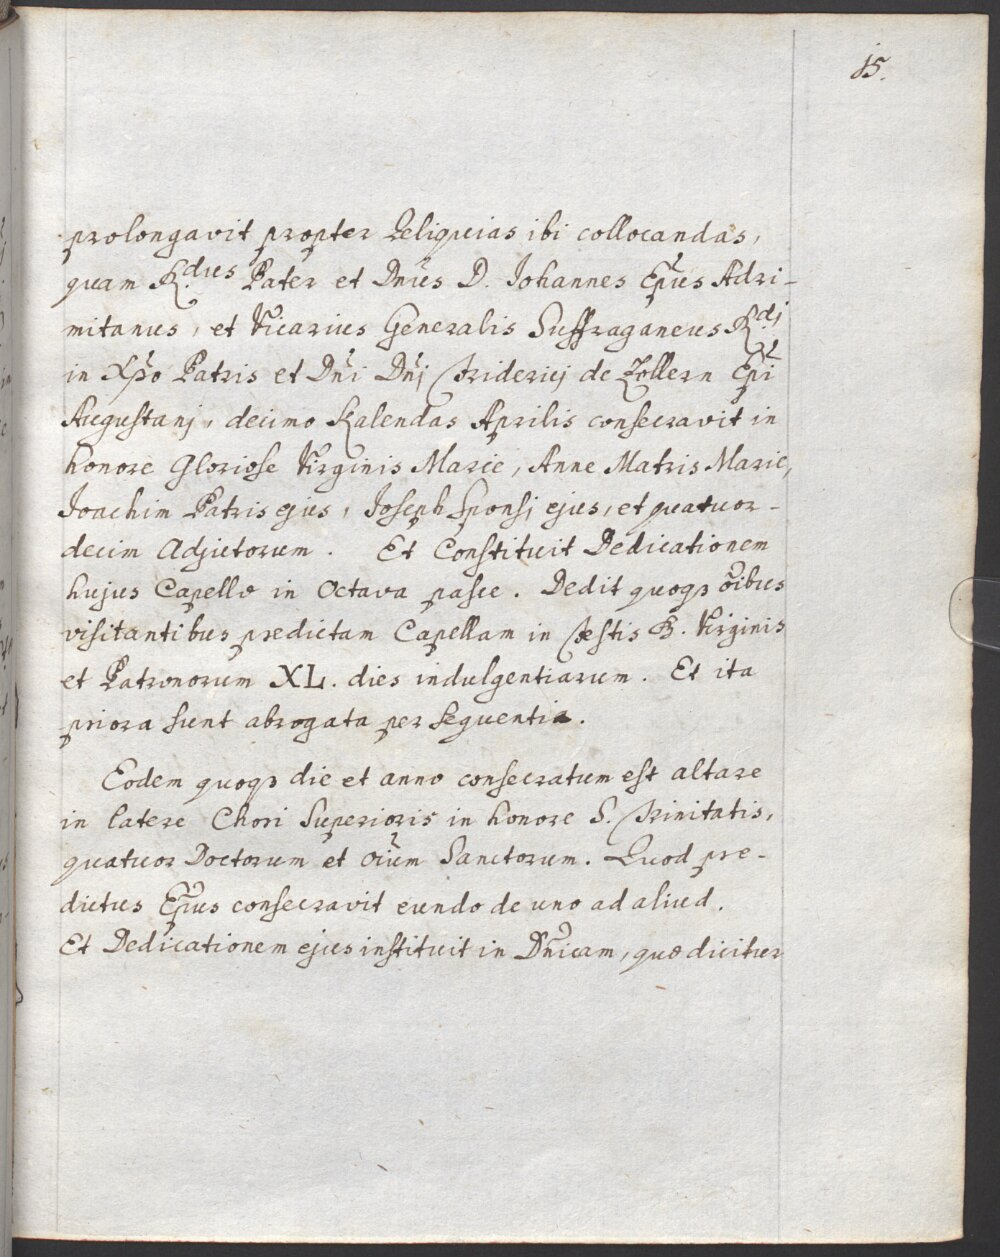 15.
prolongavit propter Reliquias ibi collocandas,
quam R.dus Pater et Dnus D. Johannes Epus Adri-
mitanus, et Vicarius Generalis Suffraganeus R.dj
in Xpo Patris et Dni Dnj Friderici de Zollern Epi
Augustanj, decimo Kalendas Aprilis consecravit in
honore Gloriose Virginis Marie, Anne Matris Marie,
Joachim Patris ejus, Joseph Sponsj ejus, et quatuor-
decim Adjutorum. Et Constituit Dedicationem
hujus Capelle in Octava pasce. Dedit quoqз oibus
visitantibus predictam Capellam in Festis B. Virginis
et Patronorum XL. dies indulgentiarum. Et ita
priora sunt abrogata per sequentia.
Eodem quoqз die et anno consecratum est altare
in latere Chori Superioris in honore S. Trinitatis,
quatuor Doctorum et oium Sanctorum. Quod pre-
dictus Epus consecravit eundo de uno ad aliud.
Et Dedicationem ejus instituit in Dnicam, quæ dicitur